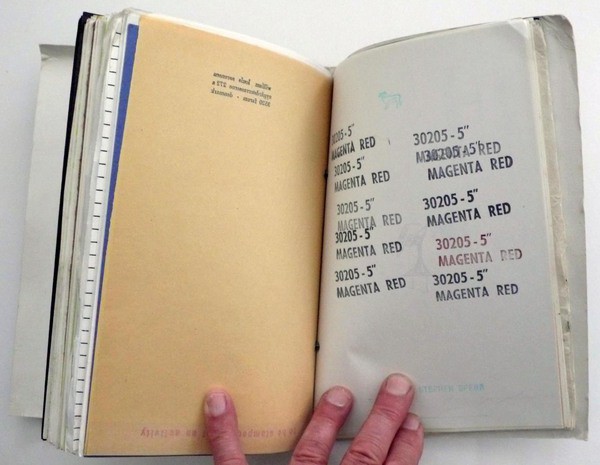 william louis sorensen
272 a
3520 farum - danmark
stamped an activity
30205-5"
MAGENTA RED
30205-5"
MAGENTA RED
30205-5"
MAGENTA RED
30205-5"
MAGENTA RED
30205-5"
MAGENTA RED
30205-5"
MAGENTA RED
30205-5"
MAGENTA RED
30205-5"
MAGENTA RED
30205-5"
MAGENTA RED
30205-5"
MAGENTA RED